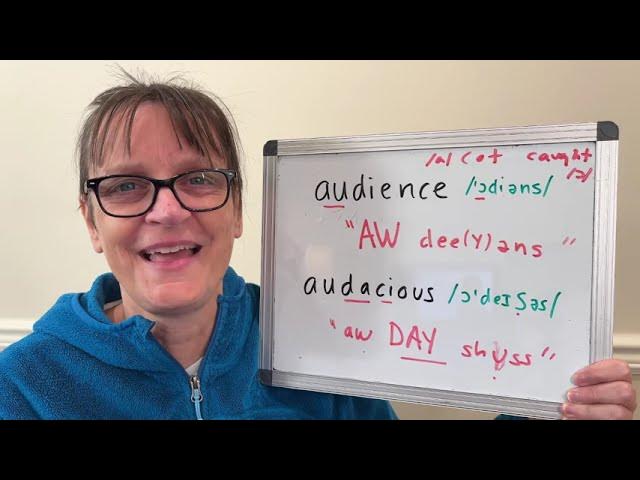 /a/ cot caught
/ɔ/
audience /ˈɔdiəns/
"AW dee(Y)əns"
audacious /ɔˈdeɪʃəs/
"aw DAY shyss"